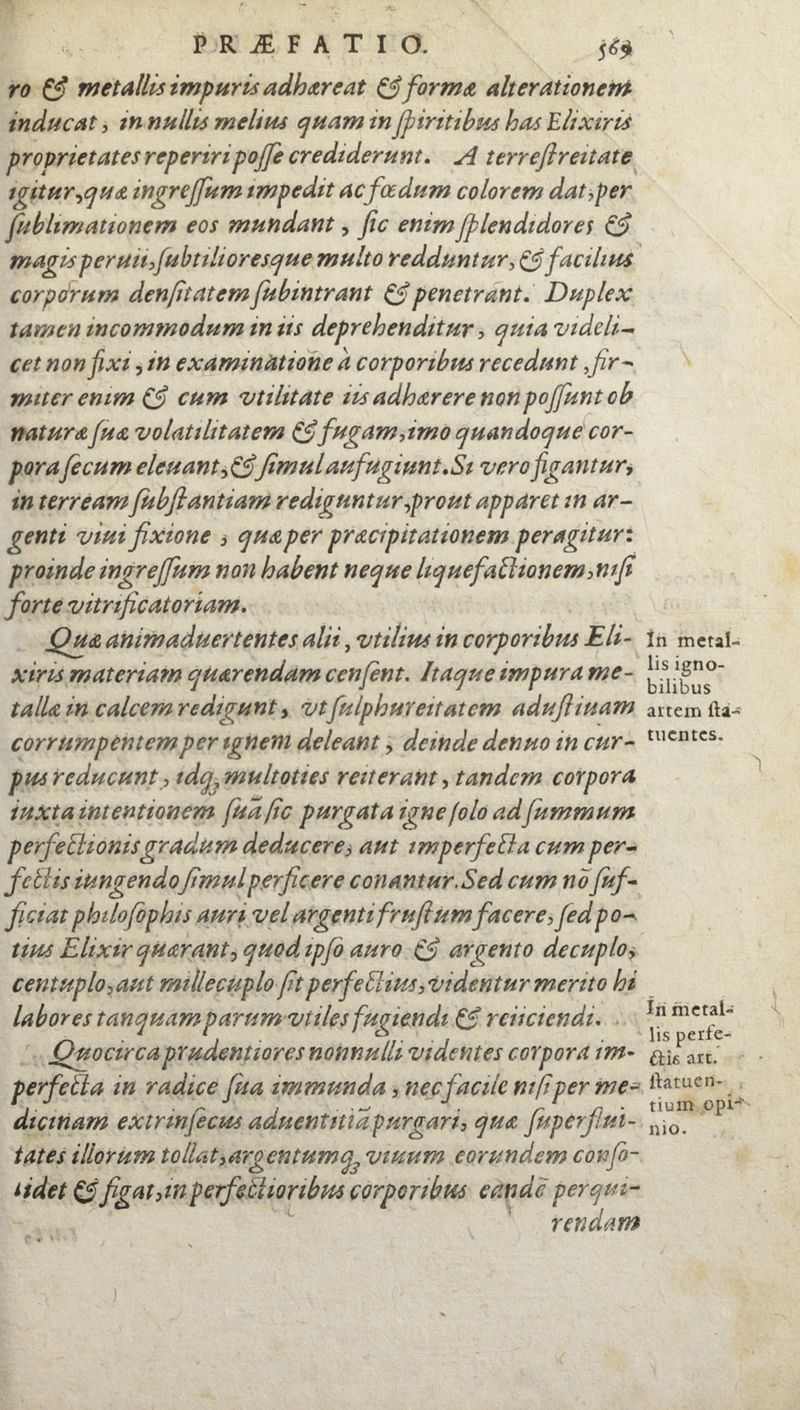 PRÆFATIO. 569
ro & metallis impuris adhæreat & formæ alterationem
inducat, in nullis melius quam in ſpiritibus has Elixiris
proprietates reperiri poſſe crediderunt. A terreſtreitate
igitur, quæ ingreſſum impedit ac fœdum colorem dat, per
ſublimationem eos mundant, ſic enim ſplendidores &
magis peruii, ſubtilioresque multo redduntur, & facilius
corporum denſitatem ſubintrant & penetrant. Duplex
tamen incommodum in iis deprehenditur, quia videli-
cet non fixi, in examinatione à corporibus recedunt, fir-
miter enim & cum vtilitate iis adhærere non poſſunt ob
naturæ ſuæ volatilitatem & fugam, imo quandoque cor-
pora ſecum eleuant, & ſimul aufugiunt. Si vero figantur,
in terream ſubſtantiam rediguntur, prout apparet in ar-
genti viui fixione, quæ per præcipitationem peragitur:
proinde ingreſſum non habent neque liquefactionem, niſi
forte vitrificatoriam.
Quæ animaduertentes alii, vtilius in corporibus Eli-
xiris materiam quærendam cenſent. Itaque impura me-
talla in calcem redigunt, vt ſulphureitatem aduſtiuam
corrumpentem per ignem deleant, deinde denuo in cur-
pus reducunt, idq; multoties reiterant, tandem corpora
iuxta intentionem ſuā ſic purgata igne ſolo ad ſummum
perfectionis gradum deducere, aut imperfecta cum per-
fectis iungendo ſimul perficere conantur. Sed cum nō ſuf-
ficiat philoſophis auri vel argenti fruſtum facere, ſed po-
tius Elixir quærant, quod ipſo auro & argento decuplo,
centuplo, aut millecuplo ſit perfectius, videntur merito hi
labores tanquam parum vtiles fugiendi & reiiciendi.
Quocirca prudentiores nonnulli videntes corpora im-
perfecta in radice ſua immunda, nec facile niſi per me-
dicinam extrinſecus aduentitiā purgari, quæ ſuperflui-
tates illorum tollat, argentumq; viuum eorundem conſo-
lidet & figat, in perfectioribus corporibus eandē perqui-
rendam
In metal-
lis igno-
bilibus
artem ſta-
tuentes.
In metal-
lis perfe-
ctis art.
ſtatuen-
tium opi-
nio.